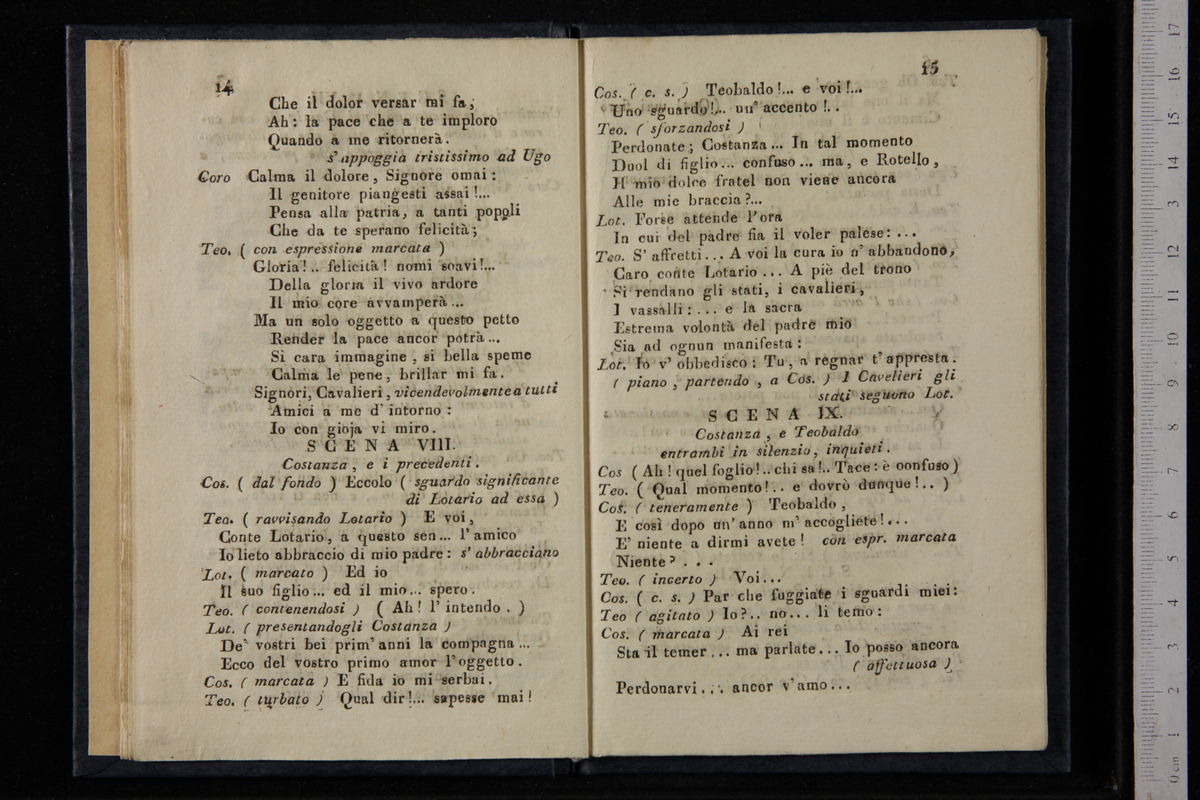 14
Che il dolor versar mi fa,
Ah: la pace che a te imploro
Quando a me ritornerà.
s' appoggia tristissimo ad Ugo
Coro Calma il dolore, Signore omai:
Il genitore piangesti assai!...
Pensa alla patria, a tanti poppli
Che da te sperano felicità;
Teo. ( con espressione marcata )
Gloria!.. felicità! nomi soavi!...
Della gloria il vivo ardore
Il mio core avvamperà...
Ma un solo oggetto a questo petto
Render la pace ancor potrà...
Sì cara immagine, sì bella speme
Calma le pene, brillar mi fa.
Signori, Cavalieri, vicendevolmente a tutti
Amici a me d' intorno:
Io con gioja vi miro.
SCENA VIII.
Costanza, e i precedenti.
Cos. ( dal fondo ) Eccolo ( sguardo significante
di Lotario ad essa )
Teo. ( ravvisando Lotario ) E voi,
Conte Lotario, a questo sen... l' amico
Io lieto abbraccio di mio padre: s' abbracciano
Lot. ( marcato ) Ed io
Il suo figlio... ed il mio... spero.
Teo. ( contenendosi ) ( Ah! l' intendo. )
Lot. ( presentandogli Costanza )
De' vostri bei prim' anni la compagna...
Ecco del vostro primo amor l' oggetto.
Cos. ( marcata ) E fida io mi serbai.
Teo. ( turbato ) Qual dir!... sapesse mai!
15
Cos. ( c. s. ) Teobaldo!... e voi!...
Uno sguardo!... un' accento!..
Teo. ( sforzandosi )
Perdonate; Costanza... In tal momento
Duol di figlio... confuso... ma, e Rotello,
Il mio dolce fratel non viene ancora
Alle mie braccia?...
Lot. Forse attende l' ora
In cui del padre fia il voler palese: ...
Teo. S' affretti... A voi la cura io n' abbandono,
Caro conte Lotario... A piè del trono
Si rendano gli stati, i cavalieri,
I vassalli: ... e la sacra
Estrema volontà del padre mio
Sia ad ognun manifesta:
Lot. Io v' obbedisco: Tu, a regnar t' appresta.
( piano, partendo, a Cos. ) I Cavelieri gli
stati seguono Lot.
SCENA IX.
Costanza, e Teobaldo
entrambi in silenzio, inquieti.
Cos ( Ah! quel foglio!.. chi sa!.. Tace: è oonfuso )
Teo. ( Qual momento!.. e dovrò dunque!.. )
Cos. ( teneramente ) Teobaldo,
E così dopo un' anno m' accogliete!...
E' niente a dirmi avete! con espr. marcata
Niente? ...
Teo. ( incerto ) Voi...
Cos. ( c. s. ) Par che fuggiate i sguardi miei:
Teo ( agitato ) Io?.. no... li temo:
Cos. ( marcata ) Ai rei
Sta il temer... ma parlate... Io posso ancora
( affettuosa )
Perdonarvi... ancor v' amo...
0 cm 1 2 3 4 5 6 7 8 9 10 11 12 13 14 15 16 17